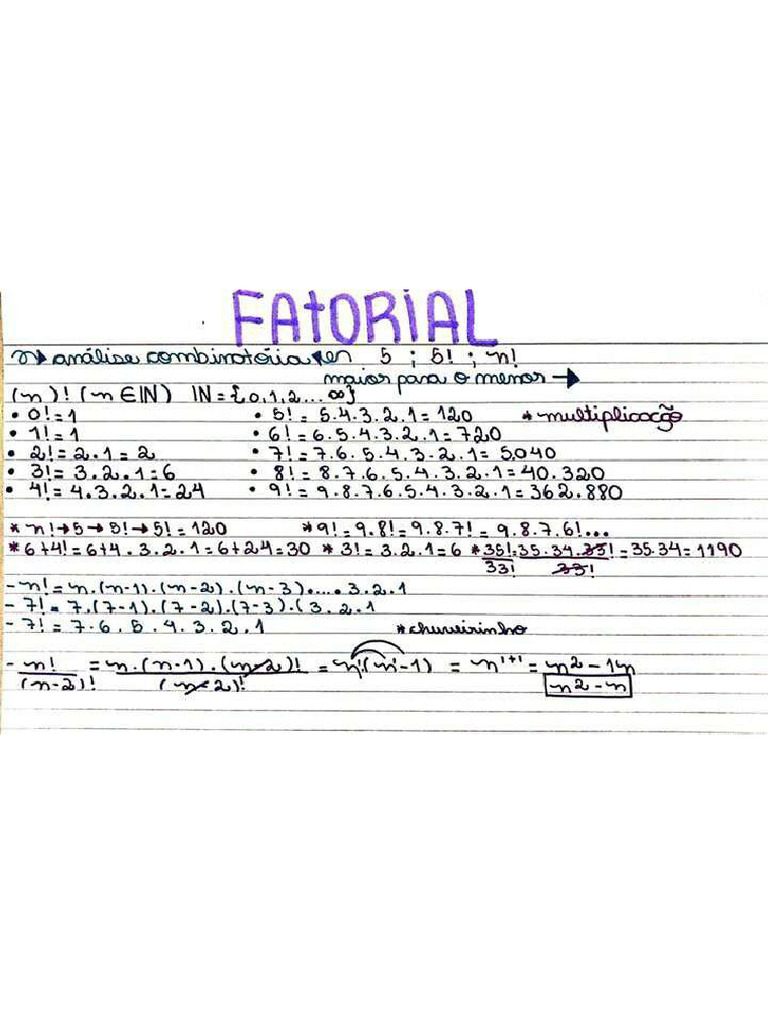 FAtORIAL
análise combinatória 5 ; 5! ; n!
maior para o menor →
(n)! (n ∈ IN) IN = {0,1,2... ∞}
• 0! = 1 • 5! = 5.4.3.2.1 = 120 * multiplicação
• 1! = 1 • 6! = 6.5.4.3.2.1 = 720
• 2! = 2.1 = 2 • 7! = 7.6.5.4.3.2.1 = 5.040
• 3! = 3.2.1 = 6 • 8! = 8.7.6.5.4.3.2.1 = 40.320
• 4! = 4.3.2.1 = 24 • 9! = 9.8.7.6.5.4.3.2.1 = 362.880
* n! → 5 → 5! → 5! = 120 * 9! = 9.8! = 9.8.7! = 9.8.7.6!...
* 6+4! = 6+4.3.2.1 = 6+24 = 30 * 3! = 3.2.1 = 6 * 35! = 35.34.33! = 35.34 = 1190
33! 33!
- n! = n.(n-1).(n-2).(n-3).....3.2.1
- 7! = 7.(7-1).(7-2).(7-3).(3.2.1
- 7! = 7.6.5.4.3.2.1 * chuveirinho
- n! = n.(n-1).(n-2)! = n¹(n¹-1) = n¹⁺¹ = n2 - 1n
(n-2)! (n-2)! n2 - n